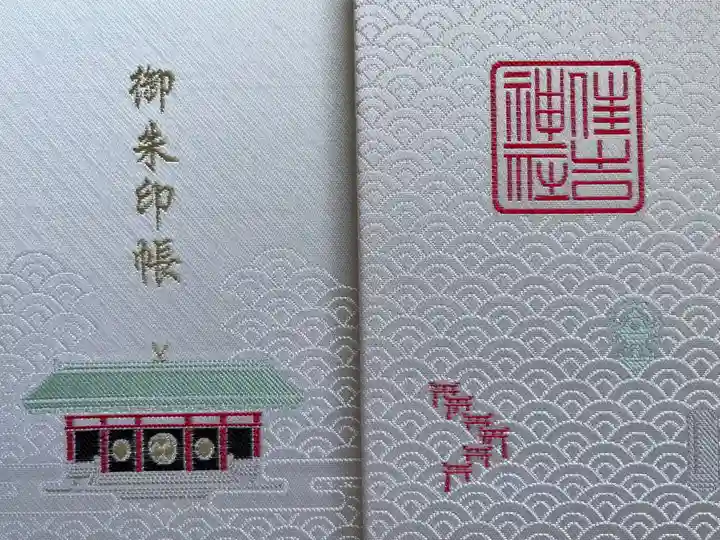 御朱印帳
住吉
神社